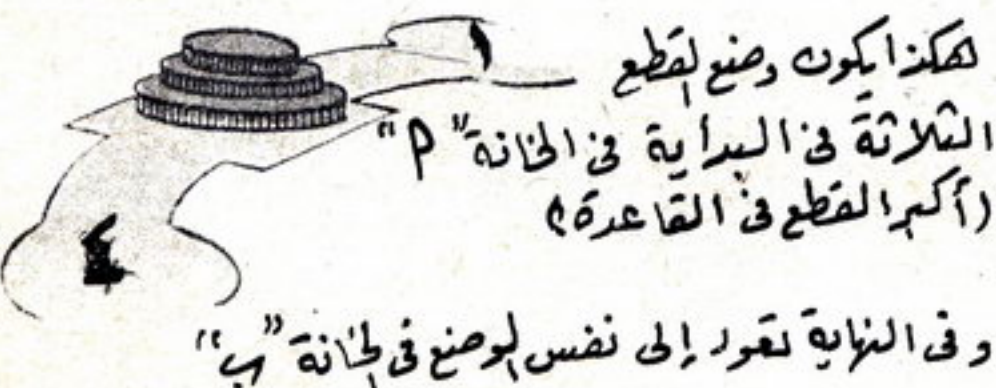 هكذا يكون وضع القطع
الثلاثة في البداية في الخانة "أ"
(أكبر القطع في القاعدة)
وفى النهاية تعود إلى نفس الوضع فى الخانة "ب"